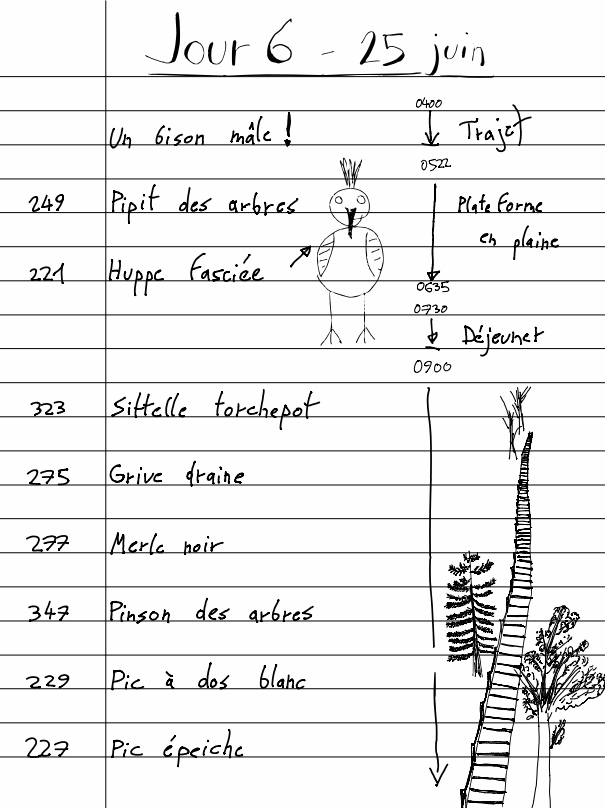 Jour 6 - 25 juin
0400
Un bison mâle ! Trajet
0522
249 Pipit des arbres Plateforme
en plaine
221 Huppe fasciée
0635
0730
Déjeuner
0900
323 Sittelle torchepot
275 Grive draine
277 Merle noir
347 Pinson des arbres
229 Pic à dos blanc
227 Pic épeiche